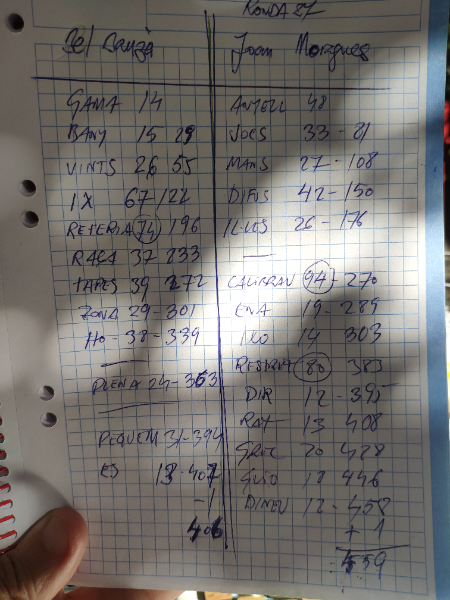 RONDA 27
Joan Morgues
GAMA 14
BANY 15 29
VINTS 26 55
IX 67/122
RETERIA 74 196
RAÇA 37 233
TAPES 39 272
ZONA 29-301
HO-38-339
—
PLENA 24-363
—
PEQUEM 31-394
ES 13-407
-1
406
48
JOCS 33-81
MANS 27-108
DIFIS 42-150
26-176
—
CALIBRAV 94-270
ENA 19-289
IXO 14 303
80 383
DIR 12-395
RAT 13 408
GREC 20 428
18 446
DINEU 12-458
+ 1
459